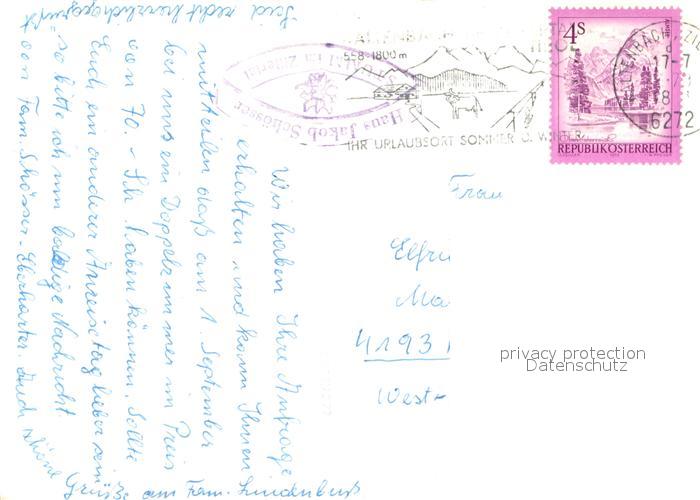 Wir haben Ihre Anfrage
erhalten und kann Ihnen
mitteilen daß am 1. September
bei uns ein Doppelzimmer im Preis
von 70.- Sch. haben können. Sollte
Euch ein anderer Anreisetag lieber sein
so bitte ich um baldige Nachricht
von Fam. Schösser-Eberharter. Auch schöne
Grüße am Fam.
Seid recht herzlich gegrüßt
Haus Jakob Schösser
im Zillertal
KALTENBACH
558-1800 m
TIROL
IHR URLAUBSORT SOMMER U. WINTER
4S
REPUBLIK ÖSTERREICH
KALTENBACH, ZILL
17-7
6272
Frau
Elfri
Ma
4193
West
privacy protection
Datenschutz